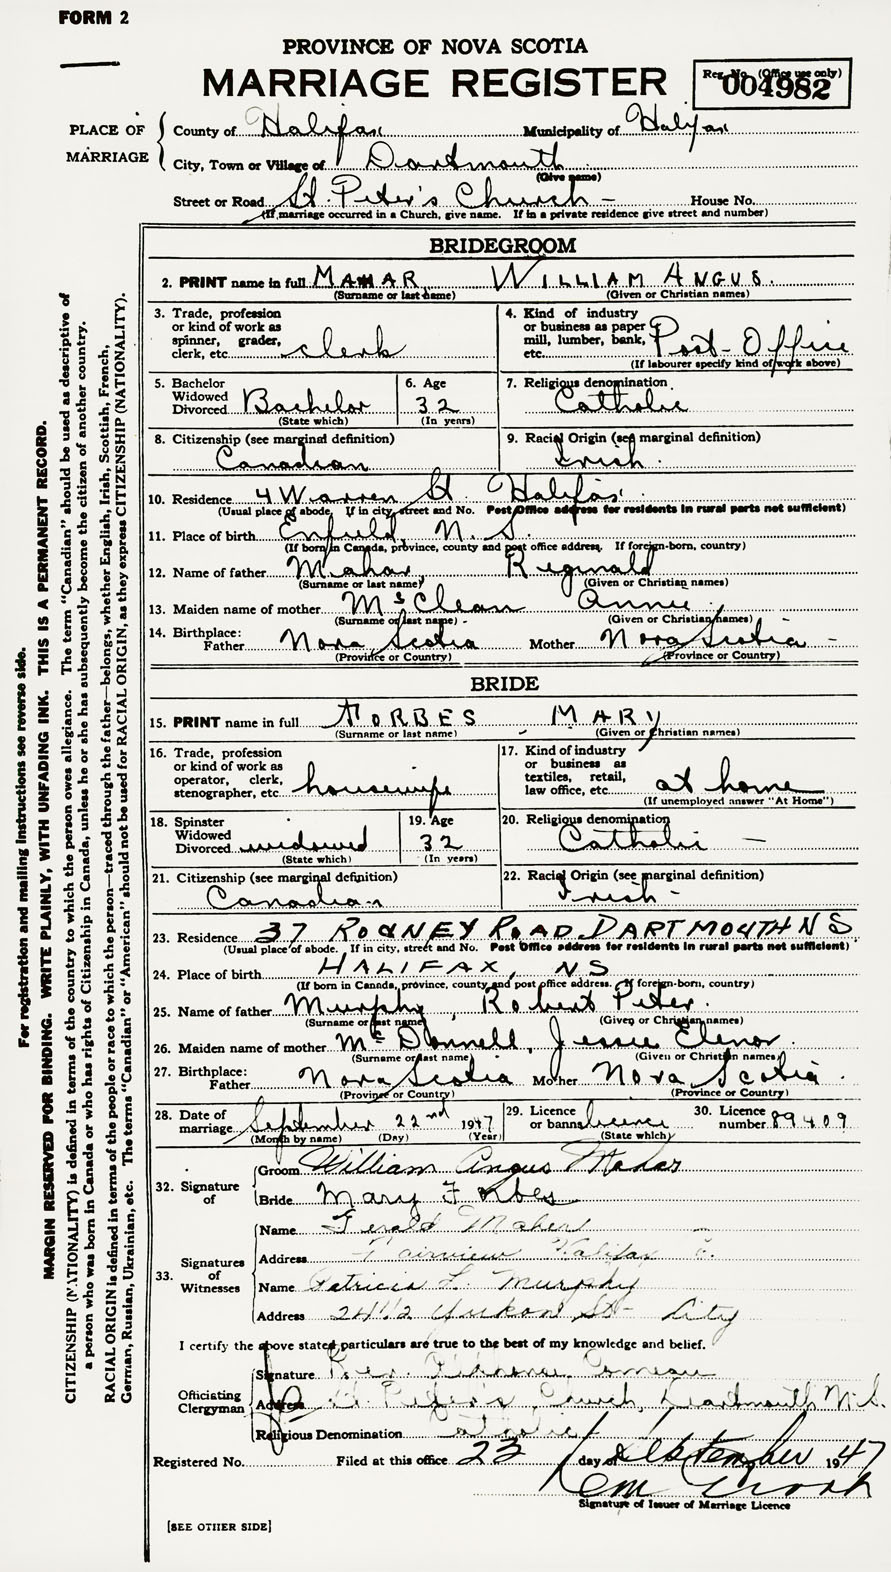 FORM 2
PROVINCE OF NOVA SCOTIA
MARRIAGE REGISTER
Reg. No. (Office use only)
004982
PLACE OF MARRIAGE
County of Halifax Municipality of Halifax
City, Town or Village of Dartmouth
(Give name)
Street or Road St. Peter's Church - House No.
(If marriage occurred in a Church, give name. If in a private residence give street and number)
BRIDEGROOM
2. PRINT name in full MAHAR, WILLIAM ANGUS.
(Surname or last name) (Given or Christian names)
3. Trade, profession or kind of work as spinner, grader, clerk, etc. clerk
4. Kind of industry or business as paper mill, lumber, bank, etc. Post-Office
(If labourer specify kind of work above)
5. Bachelor Widowed Divorced Bachelor
(State which)
6. Age 32
(In years)
7. Religious denomination Catholic
8. Citizenship (see marginal definition)
Canadian
9. Racial Origin (see marginal definition)
Irish.
10. Residence 4 Warren St. Halifax.
(Usual place of abode. If in city, street and No. Post Office address for residents in rural parts not sufficient)
11. Place of birth Enfield, N. S.
(If born in Canada, province, county and post office address. If foreign-born, country)
12. Name of father Mahar, Reginald
(Surname or last name) (Given or Christian names)
13. Maiden name of mother McClean Annie.
(Surname or last name) (Given or Christian names)
14. Birthplace:
Father Nova Scotia Mother Nova Scotia -
(Province or Country) (Province or Country)
BRIDE
15. PRINT name in full FORBES MARY
(Surname or last name) (Given or Christian names)
16. Trade, profession or kind of work as operator, clerk, stenographer, etc. housewife
17. Kind of industry or business as textiles, retail, law office, etc. at home
(If unemployed answer "At Home")
18. Spinster Widowed Divorced widowed
(State which)
19. Age 32
(In years)
20. Religious denomination
Catholic -
21. Citizenship (see marginal definition)
Canadian
22. Racial Origin (see marginal definition)
Irish -
23. Residence 37 RODNEY ROAD DARTMOUTH NS
(Usual place of abode. If in city, street and No. Post Office address for residents in rural parts not sufficient)
24. Place of birth HALIFAX, NS
(If born in Canada, province, county and post office address. If foreign-born, country)
25. Name of father Murphy, Robert Peter.
(Surname or last name) (Given or Christian names)
26. Maiden name of mother McDonnell, Jessie Elenor.
(Surname or last name) (Given or Christian names)
27. Birthplace:
Father Nova Scotia Mother Nova Scotia.
(Province or Country) (Province or Country)
28. Date of marriage September 22nd 1947
(Month by name) (Day) (Year)
29. Licence or banns licence
(State which)
30. Licence number 89409
32. Signature of
Groom William Angus Mahar
Bride Mary Forbes
33. Signatures of Witnesses
Name Gerald Maher
Address Fairview Halifax Co.
Name Patricia L. Murphy
Address 241½ Yukon St- City
I certify the above stated particulars are true to the best of my knowledge and belief.
Officiating Clergyman
Signature Rev. Comeau
Address St. Peter's Church, Dartmouth N.S.
Religious Denomination Catholic
Registered No. Filed at this office 23 day of September 1947
Signature of Issuer of Marriage Licence
[SEE OTHER SIDE]
For registration and mailing instructions see reverse side.
MARGIN RESERVED FOR BINDING. WRITE PLAINLY, WITH UNFADING INK. THIS IS A PERMANENT RECORD.
CITIZENSHIP (NATIONALITY) is defined in terms of the country to which the person owes allegiance. The term "Canadian" should be used as descriptive of
a person who was born in Canada or who has rights of Citizenship in Canada, unless he or she has subsequently become the citizen of another country.
RACIAL ORIGIN is defined in terms of the people or race to which the person—traced through the father—belongs, whether English, Irish, Scottish, French,
German, Russian, Ukrainian, etc. The terms "Canadian" or "American" should not be used for RACIAL ORIGIN, as they express CITIZENSHIP (NATIONALITY).